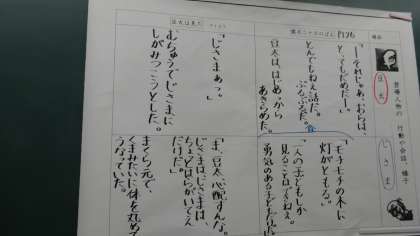 場面
登場人物の
行動や会話、様子
豆太
じさま
霜月二十日のばん
P126
「―それじゃぁ、おらは、
とってもだめだ―。」
とんでもねえ話だ。
ぶるぶるだ。
豆太は、はじめっから
あきらめた。
「モチモチの木に
灯がともる。」
一人の子どもしか
見ることはできねえ。
勇気のある子ども
豆太は見た
「じさまぁっ。」
むちゅうでじさまに
しがみつこうとした。
「ま、豆太、心配すんな。
じさまは、じさまは、
ちょっとはらがいてえ
だけだ。」
まくら元で、
くまみたいに体を丸めて
うなっていた。